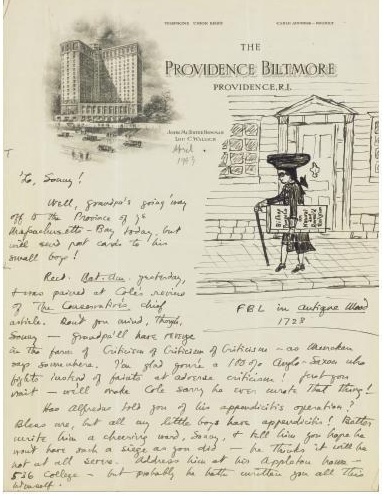 TELEPHONE UNION
THE
PROVIDENCE BILTMORE
PROVIDENCE, R.I.
JOHN McENTEE BOWMAN
April
1923
'Lo, Sonny!
Well, Grandpa's going 'way
off to the Province of ye
Massachusetts-Bay today, but
will send post cards to his
small boys!
yesterday,
& was pained at Cole's review
of The Conservative's chief
article. Don't you mind, though,
Sonny — Grandpa'll have revenge
in the form of Criticism of Criticism of Criticism — as Mencken
says somewhere. I'm glad you're a 100% Anglo-Saxon who
fights instead of faints at adverse criticism! Just you
wait — we'll make Cole sorry he ever wrote that thing!
Has Alfredus told you of his appendicitis operation?
Bless me, but all my little boys have appendicitis! Better
write him a cheering word, Sonny, & tell him you hope he
won't have such a siege as you did — he thinks it will be
not at all severe. Address him at his Appleton home —
536 College — but probably he hath written you all this
himself!
in Antique
1723